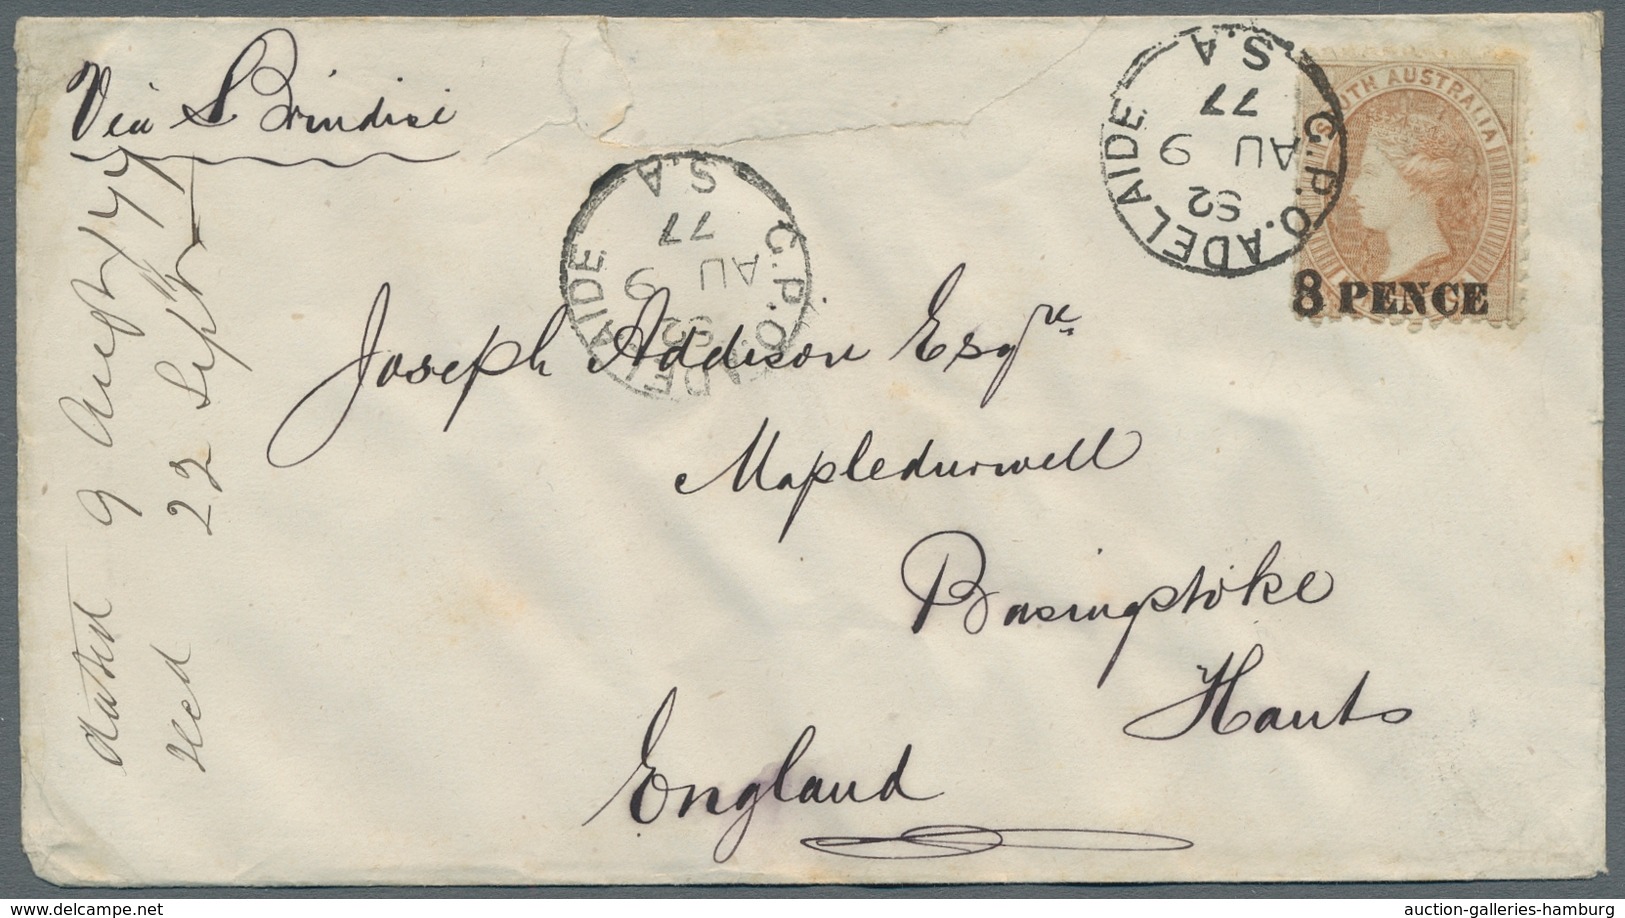 Via Brindisi
dated 9 Augt/77
recd 22 Sept/77
G.P.O. ADELAIDE
S2
AU 9
77
S.A
G.P.O. ADELAIDE
S2
AU 9
77
S.A
SOUTH AUSTRALIA
8 PENCE
Joseph Addison Esqre
Mapledurwell
Basingstoke
Hants
England
www.delcampe.net
auction-galleries-hamburg